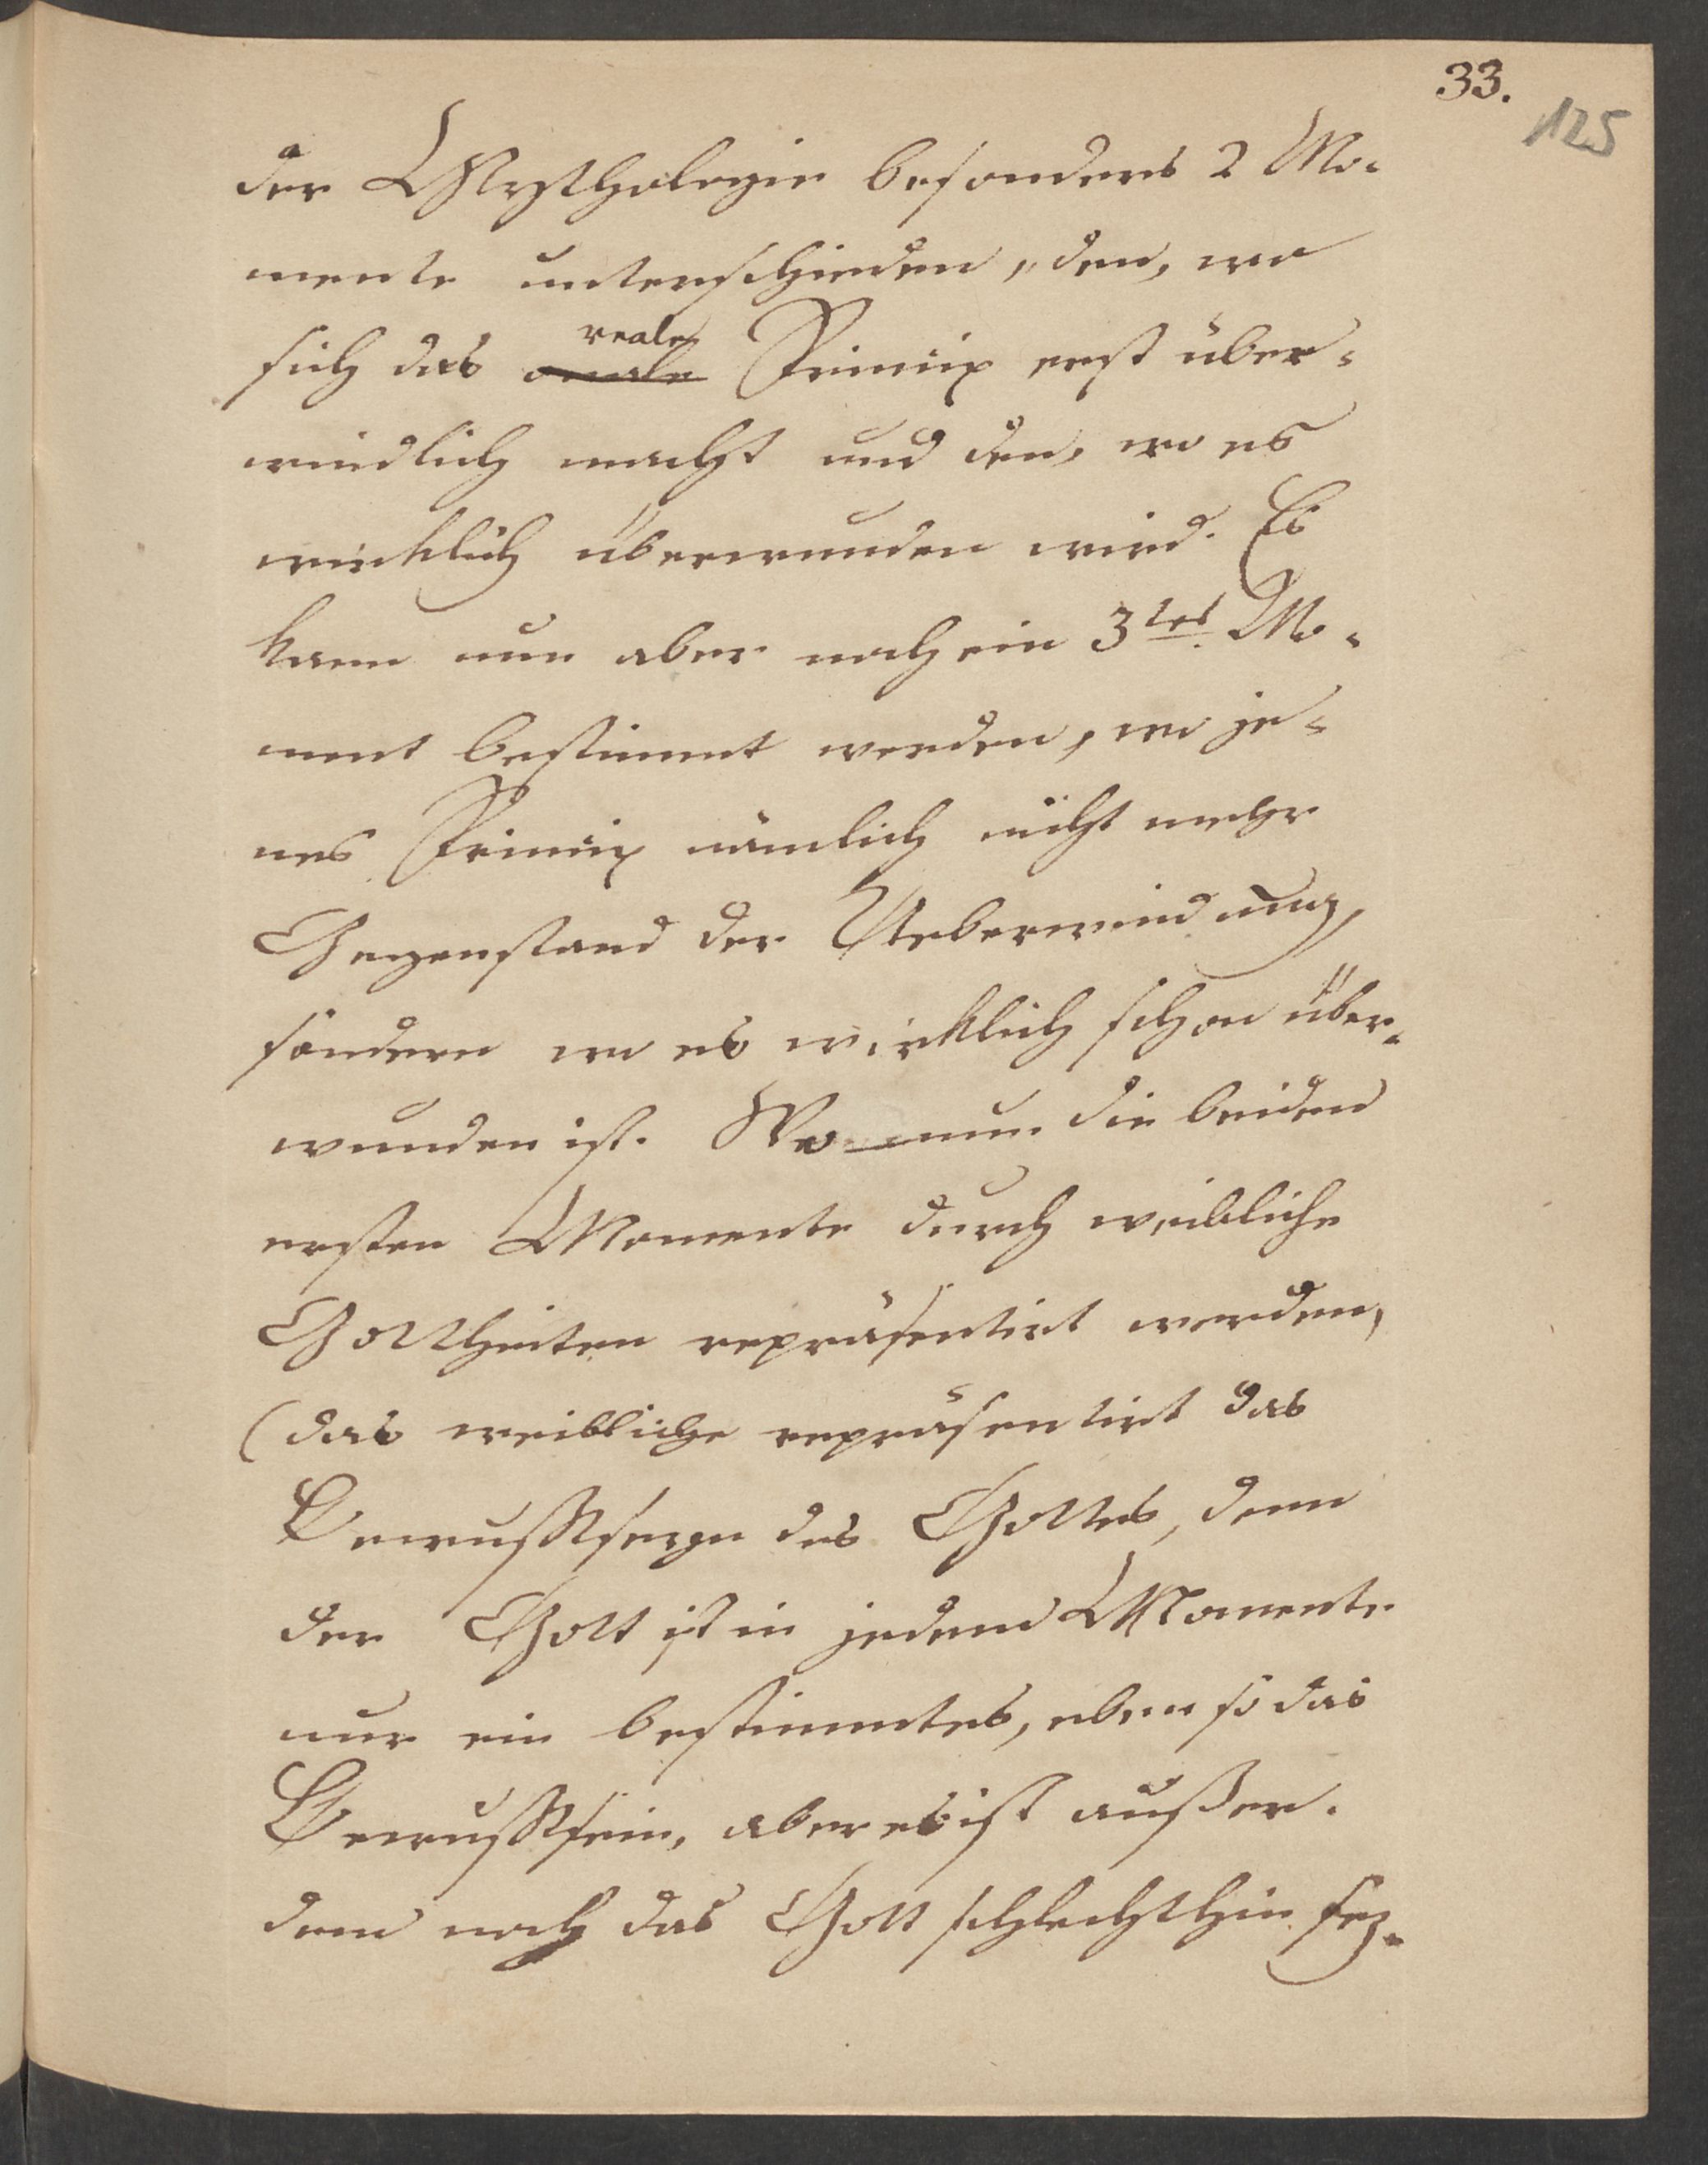 33.
125
der Mythologie besonders 2 Mo-
mente unterschieden, den, wo
reale
sich das Princip erst über-
windlich macht und den, wo es
wirklich überwunden wird. Es
kann nun aber noch ein 3tes Mo-
ment bestimmt werden, wo je-
nes Princip nämlich nicht mehr
Gegenstand der Ueberwindung,
sondern wo es wirklich schon über-
wunden ist. Wo nun die beiden
ersten Momente durch weibliche
Gottheiten repräsentirt werden,
(das weibliche repräsentirt das
Bewußtseyn des Gottes, denn
der Gott ist in jedem Momente
nur ein bestimmtes, eben so das
Bewußtsein, aber es ist außer-
dem noch das Gott schlechthin sez-